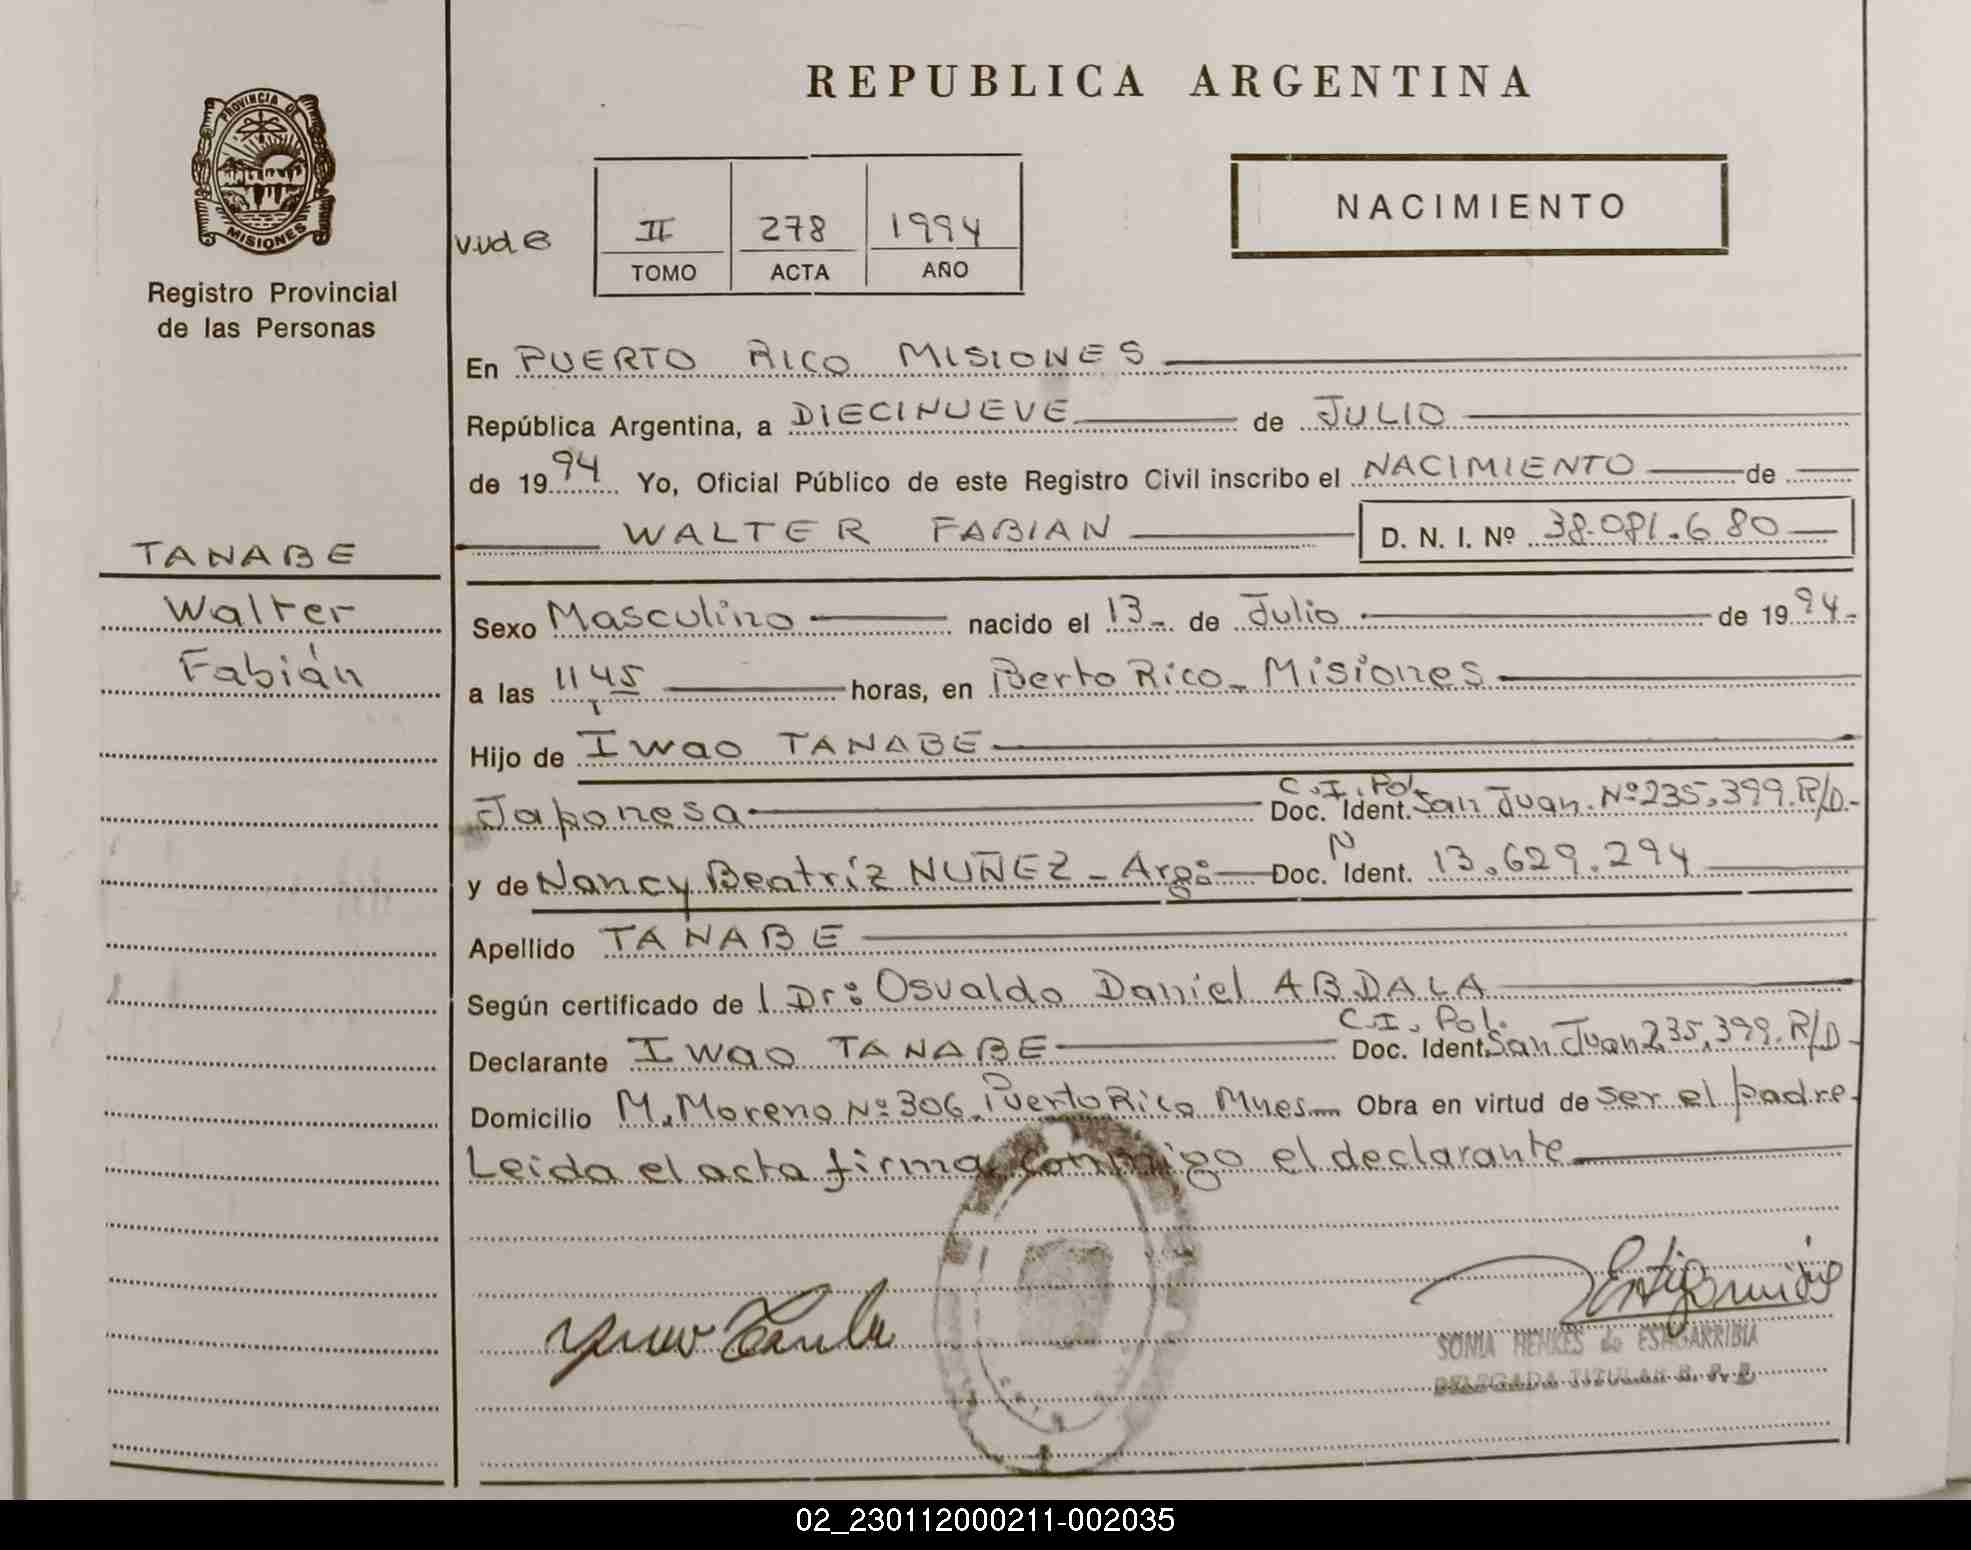 REPUBLICA ARGENTINA
PROVINCIA DE
MISIONES
Registro Provincial
de las Personas
II 278 1994
TOMO ACTA AÑO
NACIMIENTO
En PUERTO RICO MISIONES
República Argentina, a DIECINUEVE de JULIO
de 1994 Yo, Oficial Público de este Registro Civil inscribo el NACIMIENTO de
WALTER FABIAN D. N. I. Nº 38.081.680
TANABE
Walter
Fabián
Sexo Masculino nacido el 13 de Julio de 1994.
a las 11 45 horas, en Puerto Rico Misiones
Hijo de Iwao TANABE
C.I. Pol.
Japonesa Doc. Ident. San Juan. Nº 235.399. R/D.
N
y de Nancy Beatríz NUÑEZ - Arg: Doc. Ident. 13.629.294
Apellido TANABE
Según certificado de l Dr: Osvaldo Daniel ABDALA
C.I. Pol.
Declarante Iwao TANABE Doc. Ident. San Juan 235.399. R/D
Domicilio M. Moreno Nº 306. Puerto Rico Mnes Obra en virtud de ser el padre.
Leida el acta firma conmigo el declarante
SONIA HENKES de ESIGARRIBIA
DELEGADA TITULAR R. P. P.
02_230112000211-002035